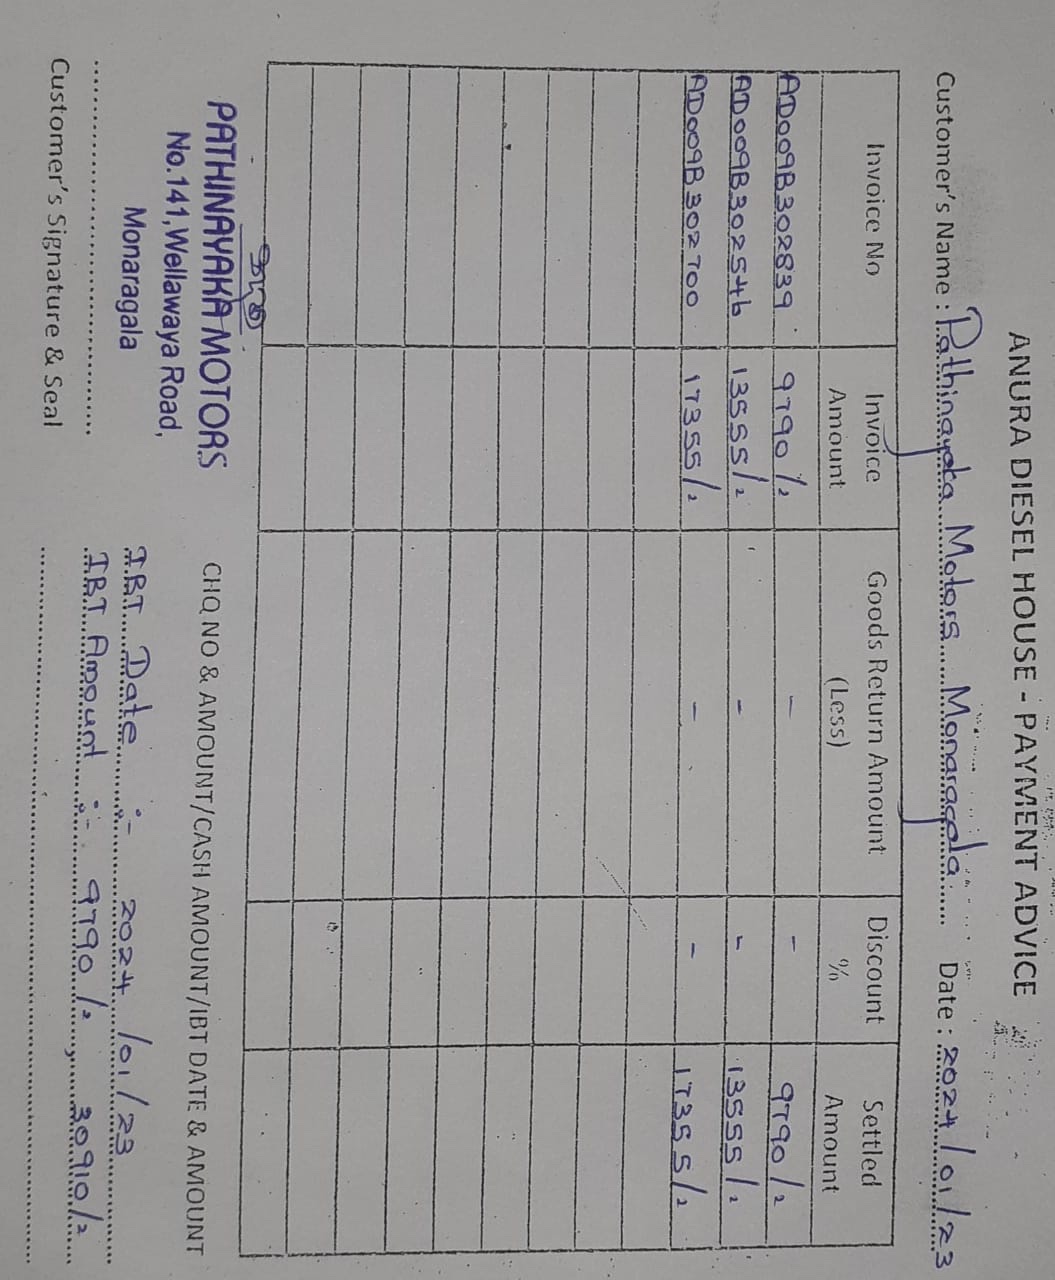 ANURA DIESEL HOUSE - PAYMENT ADVICE
Customer's Name : Pathinayaka Motors Monaragala Date : 2024/01/23
Invoice No Invoice Amount Goods Return Amount (Less) Discount % Settled Amount
AD009B302839 9790/= - - 9790/=
AD009B302546 13555/= - - 13555/=
AD009B302700 17355/= - - 17355/=
PATHINAYAKA MOTORS
No.141,Wellawaya Road,
Monaragala
Customer's Signature & Seal
CHQ NO & AMOUNT/CASH AMOUNT/IBT DATE & AMOUNT
IBT Date :- 2024/01/23
IBT Amount :- 9790/=, 30910/=